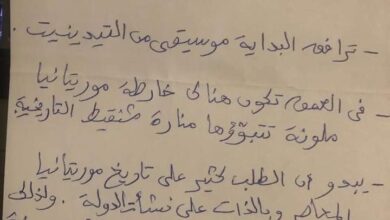 - ترافق البداية موسيقى من التيدينيت .
- في العمق تكون هنالك خارطة موريتانيا
ملونة تتبوؤها منارة شنقيط التاريخية
- يبدو أن الطلب كثير على تاريخ موريتانيا
المعاصر وبالذات على نشأة الدولة . ولذلك